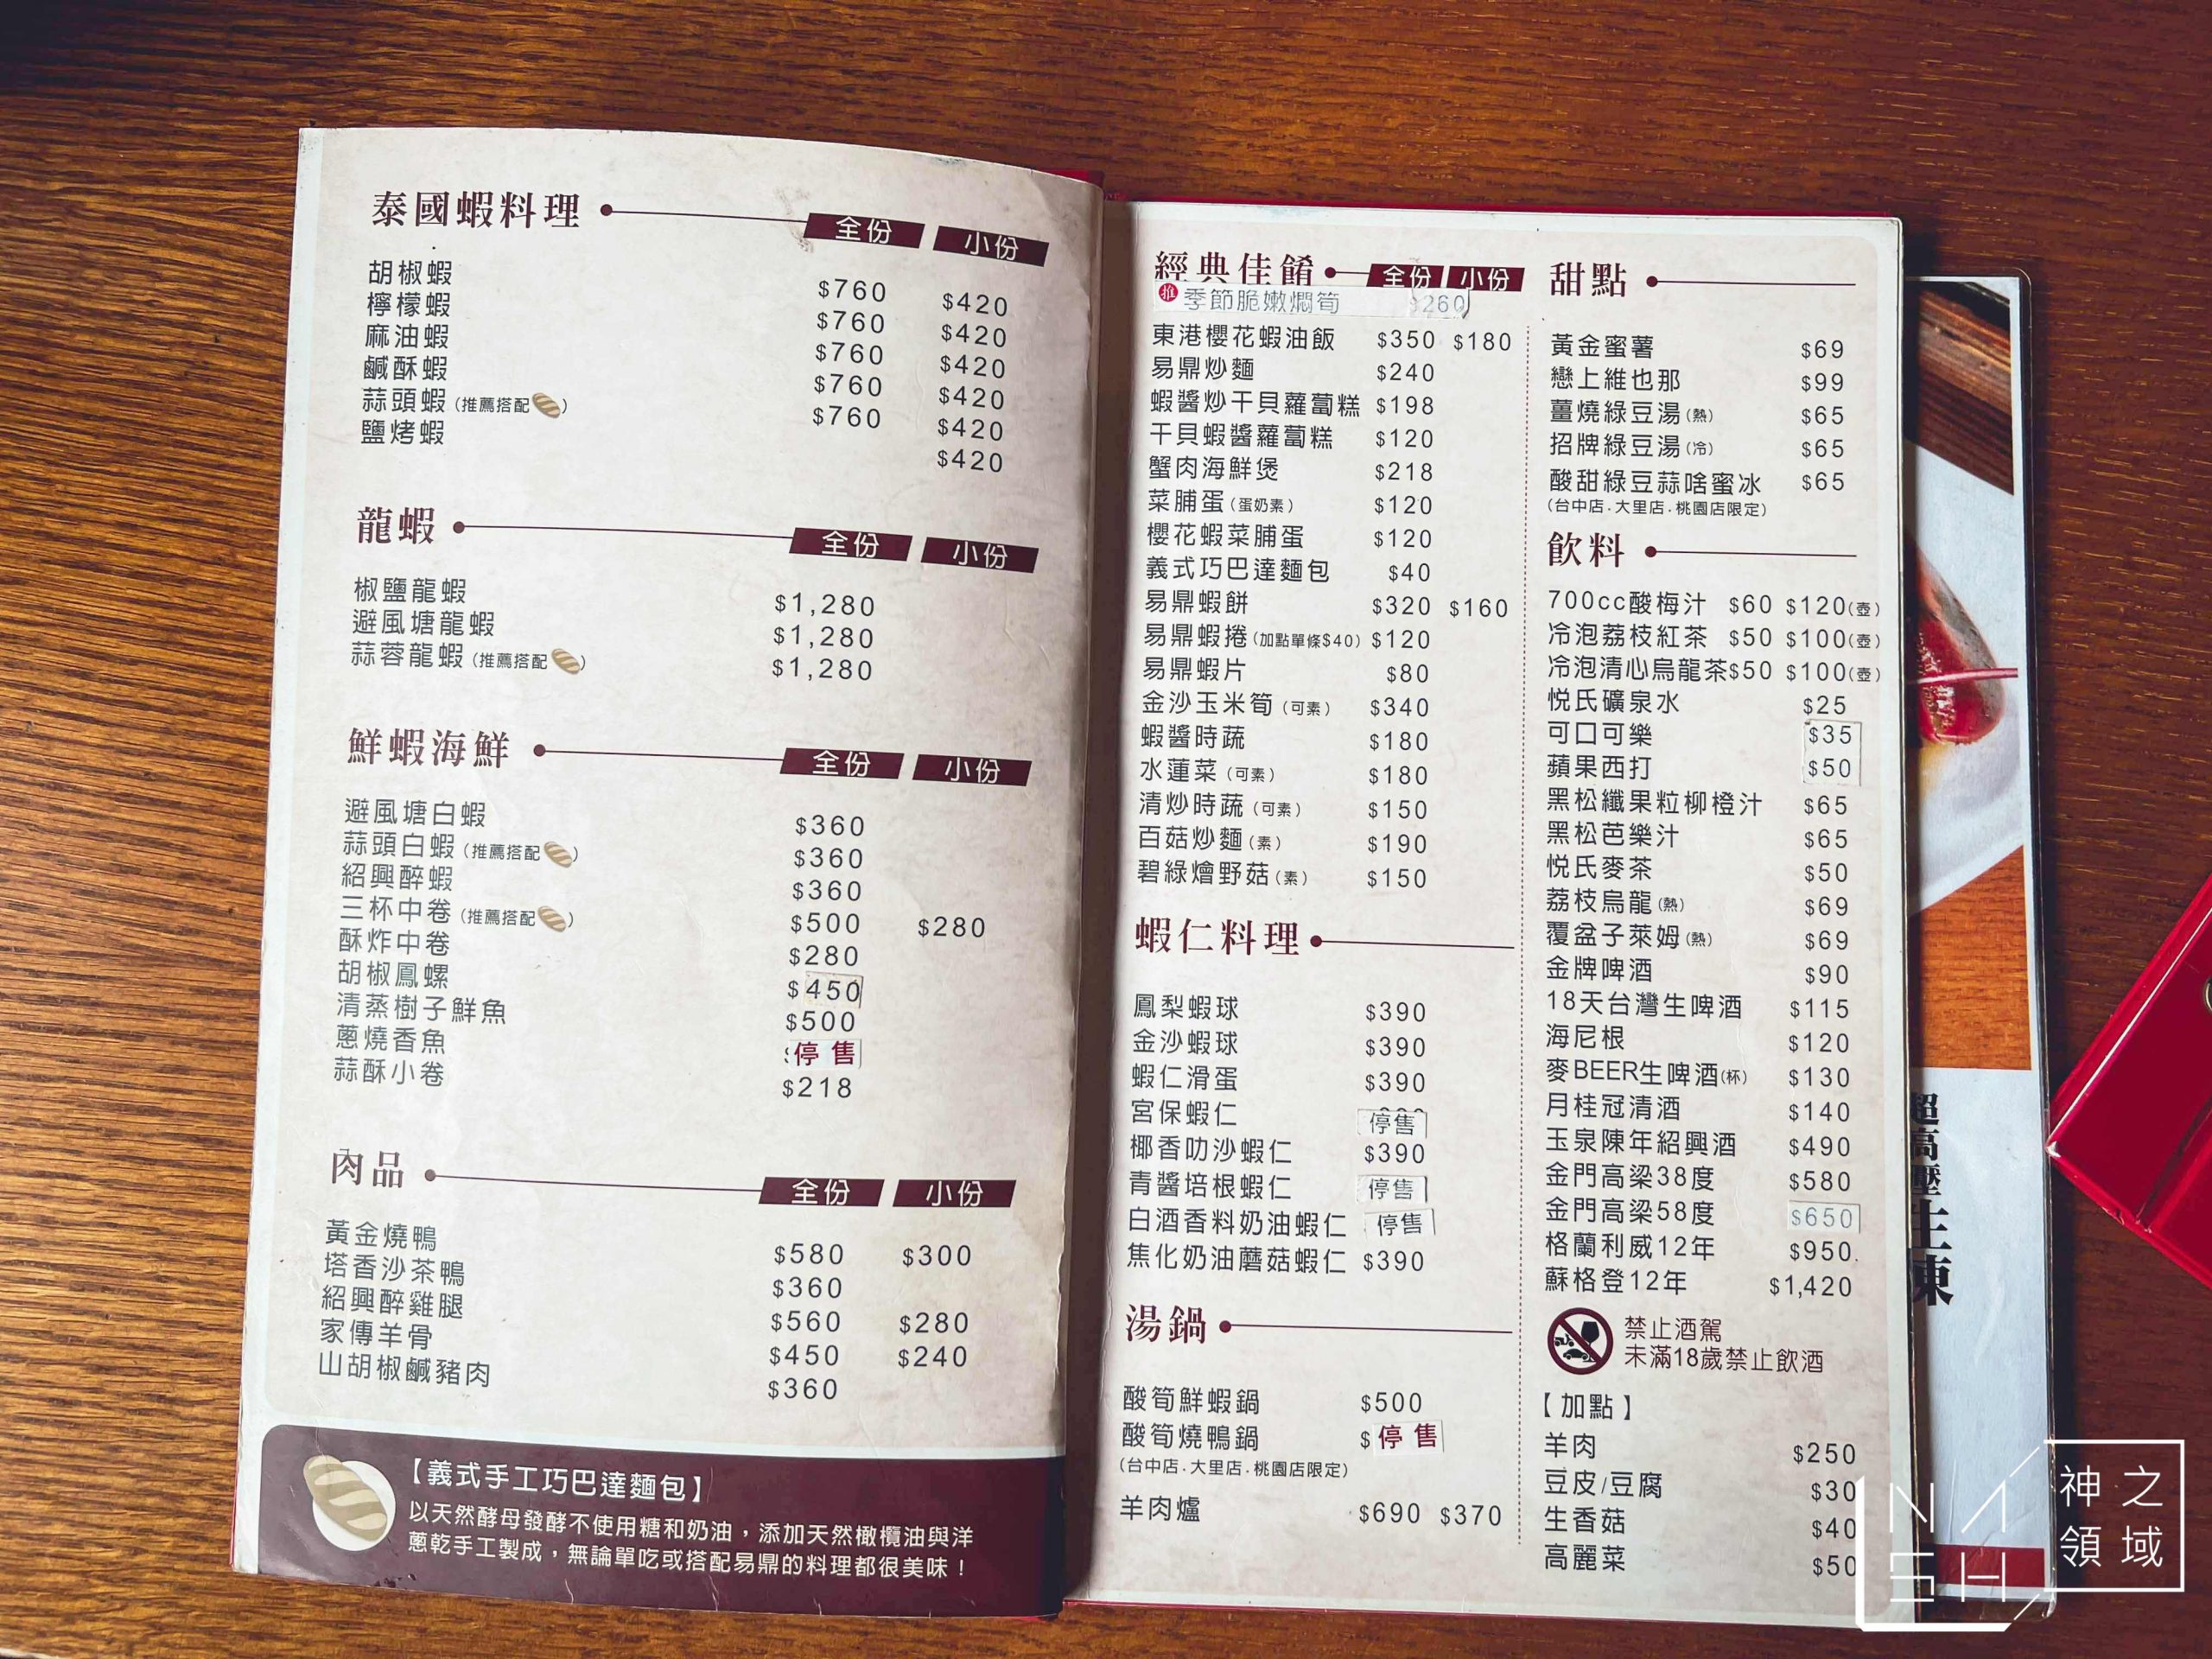 泰國蝦料理 全份 小份
胡椒蝦 $760 $420
檸檬蝦 $760 $420
麻油蝦 $760 $420
鹹酥蝦 $760 $420
蒜頭蝦(推薦搭配) $760 $420
鹽烤蝦 $420
龍蝦 全份 小份
椒鹽龍蝦 $1,280
避風塘龍蝦 $1,280
蒜蓉龍蝦(推薦搭配) $1,280
鮮蝦海鮮 全份 小份
避風塘白蝦 $360
蒜頭白蝦(推薦搭配) $360
紹興醉蝦 $360
三杯中卷(推薦搭配) $500 $280
酥炸中卷 $280
胡椒鳳螺 $450
清蒸樹子鮮魚 $500
蔥燒香魚 停售
蒜酥小卷 $218
肉品 全份 小份
黃金燒鴨 $580 $300
塔香沙茶鴨 $360
紹興醉雞腿 $560 $280
家傳羊骨 $450 $240
山胡椒鹹豬肉 $360
【義式手工巧巴達麵包】
以天然酵母發酵不使用糖和奶油，添加天然橄欖油與洋
蔥乾手工製成，無論單吃或搭配易鼎的料理都很美味！
經典佳餚 全份 小份
推 季節脆嫩燜筍 $260
東港櫻花蝦油飯 $350 $180
易鼎炒麵 $240
蝦醬炒干貝蘿蔔糕 $198
干貝蝦醬蘿蔔糕 $120
蟹肉海鮮煲 $218
菜脯蛋(蛋奶素) $120
櫻花蝦菜脯蛋 $120
義式巧巴達麵包 $40
易鼎蝦餅 $320 $160
易鼎蝦捲(加點單條$40) $120
易鼎蝦片 $80
金沙玉米筍(可素) $340
蝦醬時蔬 $180
水蓮菜(可素) $180
清炒時蔬(可素) $150
百菇炒麵(素) $190
碧綠燴野菇(素) $150
蝦仁料理
鳳梨蝦球 $390
金沙蝦球 $390
蝦仁滑蛋 $390
宮保蝦仁 停售
椰香叻沙蝦仁 $390
青醬培根蝦仁 停售
白酒香料奶油蝦仁 停售
焦化奶油蘑菇蝦仁 $390
湯鍋
酸筍鮮蝦鍋 $500
酸筍燒鴨鍋 $停售
(台中店.大里店.桃園店限定)
羊肉爐 $690 $370
甜點
黃金蜜薯 $69
戀上維也那 $99
薑燒綠豆湯(熱) $65
招牌綠豆湯(冷) $65
酸甜綠豆蒜啥蜜冰 $65
(台中店.大里店.桃園店限定)
飲料
700cc酸梅汁 $60 $120(壺)
冷泡荔枝紅茶 $50 $100(壺)
冷泡清心烏龍茶$50 $100(壺)
悅氏礦泉水 $25
可口可樂 $35
蘋果西打 $50
黑松纖果粒柳橙汁 $65
黑松芭樂汁 $65
悅氏麥茶 $50
荔枝烏龍(熱) $69
覆盆子萊姆(熱) $69
金牌啤酒 $90
18天台灣生啤酒 $115
海尼根 $120
麥BEER生啤酒(杯) $130
月桂冠清酒 $140
玉泉陳年紹興酒 $490
金門高粱38度 $580
金門高粱58度 $650
格蘭利威12年 $950
蘇格登12年 $1,420
禁止酒駕
未滿18歲禁止飲酒
【加點】
羊肉 $250
豆皮/豆腐 $30
生香菇 $40
高麗菜 $50
NASH
神之
領域